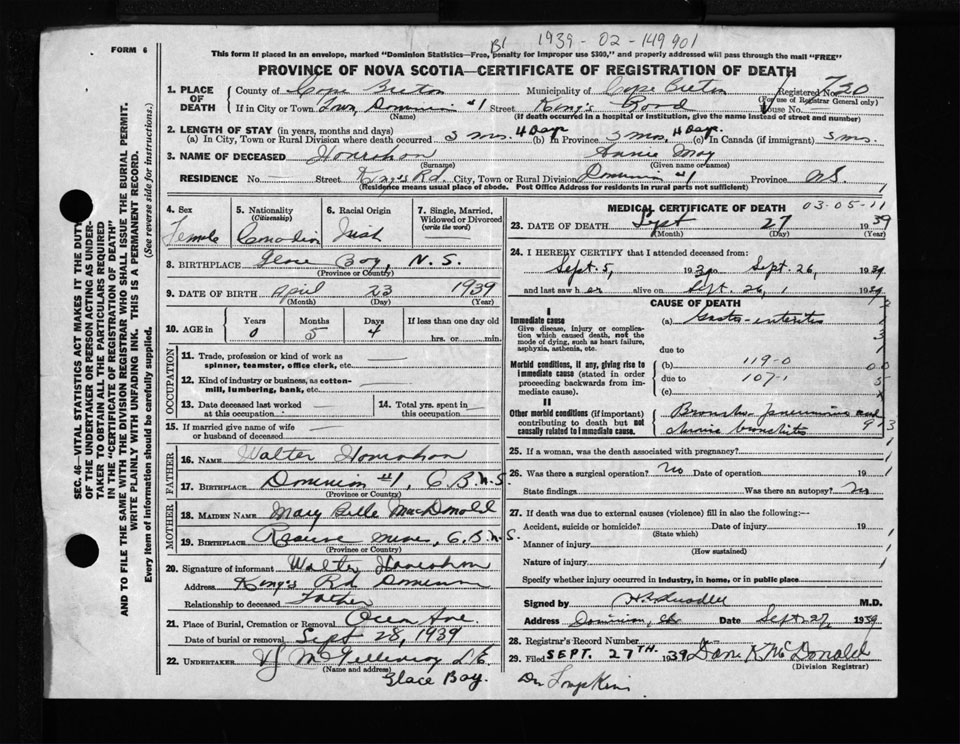 1939 - 02 - 149901
FORM 6
This form if placed in an envelope, marked "Dominion Statistics—Free, penalty for improper use $300," and properly addressed will pass through the mail "FREE"
PROVINCE OF NOVA SCOTIA—CERTIFICATE OF REGISTRATION OF DEATH
SEC. 46—VITAL STATISTICS ACT MAKES IT THE DUTY OF THE UNDERTAKER OR PERSON ACTING AS UNDERTAKER TO OBTAIN ALL THE PARTICULARS REQUIRED IN THE "CERTIFICATE OF REGISTRATION OF DEATH" AND TO FILE THE SAME WITH THE DIVISION REGISTRAR WHO SHALL ISSUE THE BURIAL PERMIT.
WRITE PLAINLY WITH UNFADING INK. THIS IS A PERMANENT RECORD.
Every item of information should be carefully supplied. (See reverse side for instructions.)
1. PLACE OF DEATH County of Cape Breton Municipality of Cape Breton Registered No. 730
(For use of Registrar General only)
If in City or Town Town, Dominion #1 Street King's Road House No.
(Name) (If death occurred in a hospital or institution, give the name instead of street and number)
2. LENGTH OF STAY (in years, months and days)
(a) In City, Town or Rural Division where death occurred 5 mos. 4 Days (b) in Province 5 mos. 4 Days. (c) In Canada (if immigrant) 5 mos.
3. NAME OF DECEASED Hourahan Annie May
(Surname) (Given name or names)
RESIDENCE No. — Street King's Rd. City, Town or Rural Division Dominion #1 Province N.S.
(Residence means usual place of abode. Post Office Address for residents in rural parts not sufficient)
4. Sex Female
5. Nationality (Citizenship) Canadian
6. Racial Origin Irish
7. Single, Married, Widowed or Divorced (write the word)
8. BIRTHPLACE Glace Bay, N.S.
(Province or Country)
9. DATE OF BIRTH April 23 1939
(Month) (Day) (Year)
10. AGE in Years 0 Months 5 Days 4 If less than one day old
hrs. or min.
OCCUPATION
11. Trade, profession or kind of work as spinner, teamster, office clerk, etc.
12. Kind of industry or business, as cotton-mill, lumbering, bank, etc.
13. Date deceased last worked at this occupation
14. Total yrs. spent in this occupation
15. If married give name of wife or husband of deceased
FATHER
16. NAME Walter Hourahan
17. BIRTHPLACE Dominion #1, C.B. N.S.
(Province or Country)
MOTHER
18. MAIDEN NAME Mary Belle MacDonald
19. BIRTHPLACE Reserve Mines, C.B. N.S.
(Province or Country)
20. Signature of informant Walter Hourahan
Address King's Rd Dominion
Relationship to deceased Father
21. Place of Burial, Cremation or Removal Ocean Ave.
Date of burial or removal Sept 28, 1939
22. UNDERTAKER VJ McGillivray L.E.
(Name and address)
Glace Bay.
MEDICAL CERTIFICATE OF DEATH 03-05-11
23. DATE OF DEATH Sept 27 1939
(Month) (Day) (Year)
24. I HEREBY CERTIFY that I attended deceased from:
Sept. 5, 1939 to Sept. 26, 1939
and last saw her alive on Sept. 26, 1939
CAUSE OF DEATH
I
Immediate cause (a) Gastro-enteritis
Give disease, injury or complication which caused death, not the mode of dying, such as heart failure, asphyxia, asthenia, etc.
due to
Morbid conditions, if any, giving rise to immediate cause (stated in order proceeding backwards from immediate cause). (b) 119-0
due to 107-1
(c)
II
Other morbid conditions (if important) contributing to death but not causally related to immediate cause. Broncho-pneumonia and chronic bronchitis
25. If a woman, was the death associated with pregnancy?
26. Was there a surgical operation? No Date of operation 19
State findings Was there an autopsy? No
27. If death was due to external causes (violence) fill in also the following:—
Accident, suicide or homicide? Date of injury 19
(State which)
Manner of injury
(How sustained)
Nature of injury
Specify whether injury occurred in industry, in home, or in public place
Signed by M.D.
Address Dominion, Date Sept. 27, 1939
28. Registrar's Record Number
29. Filed SEPT. 27TH. 1939 Dan K McDonald
(Division Registrar)
Dr Tompkins